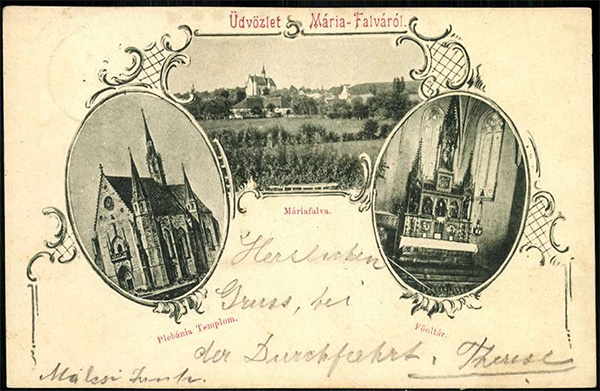 Üdvözlet Mária-Falváról.
Máriafalva.
Plebánia Templom.
Főoltár.
Herzlichen
Gruss, bei
der Durchfahrt. Therese